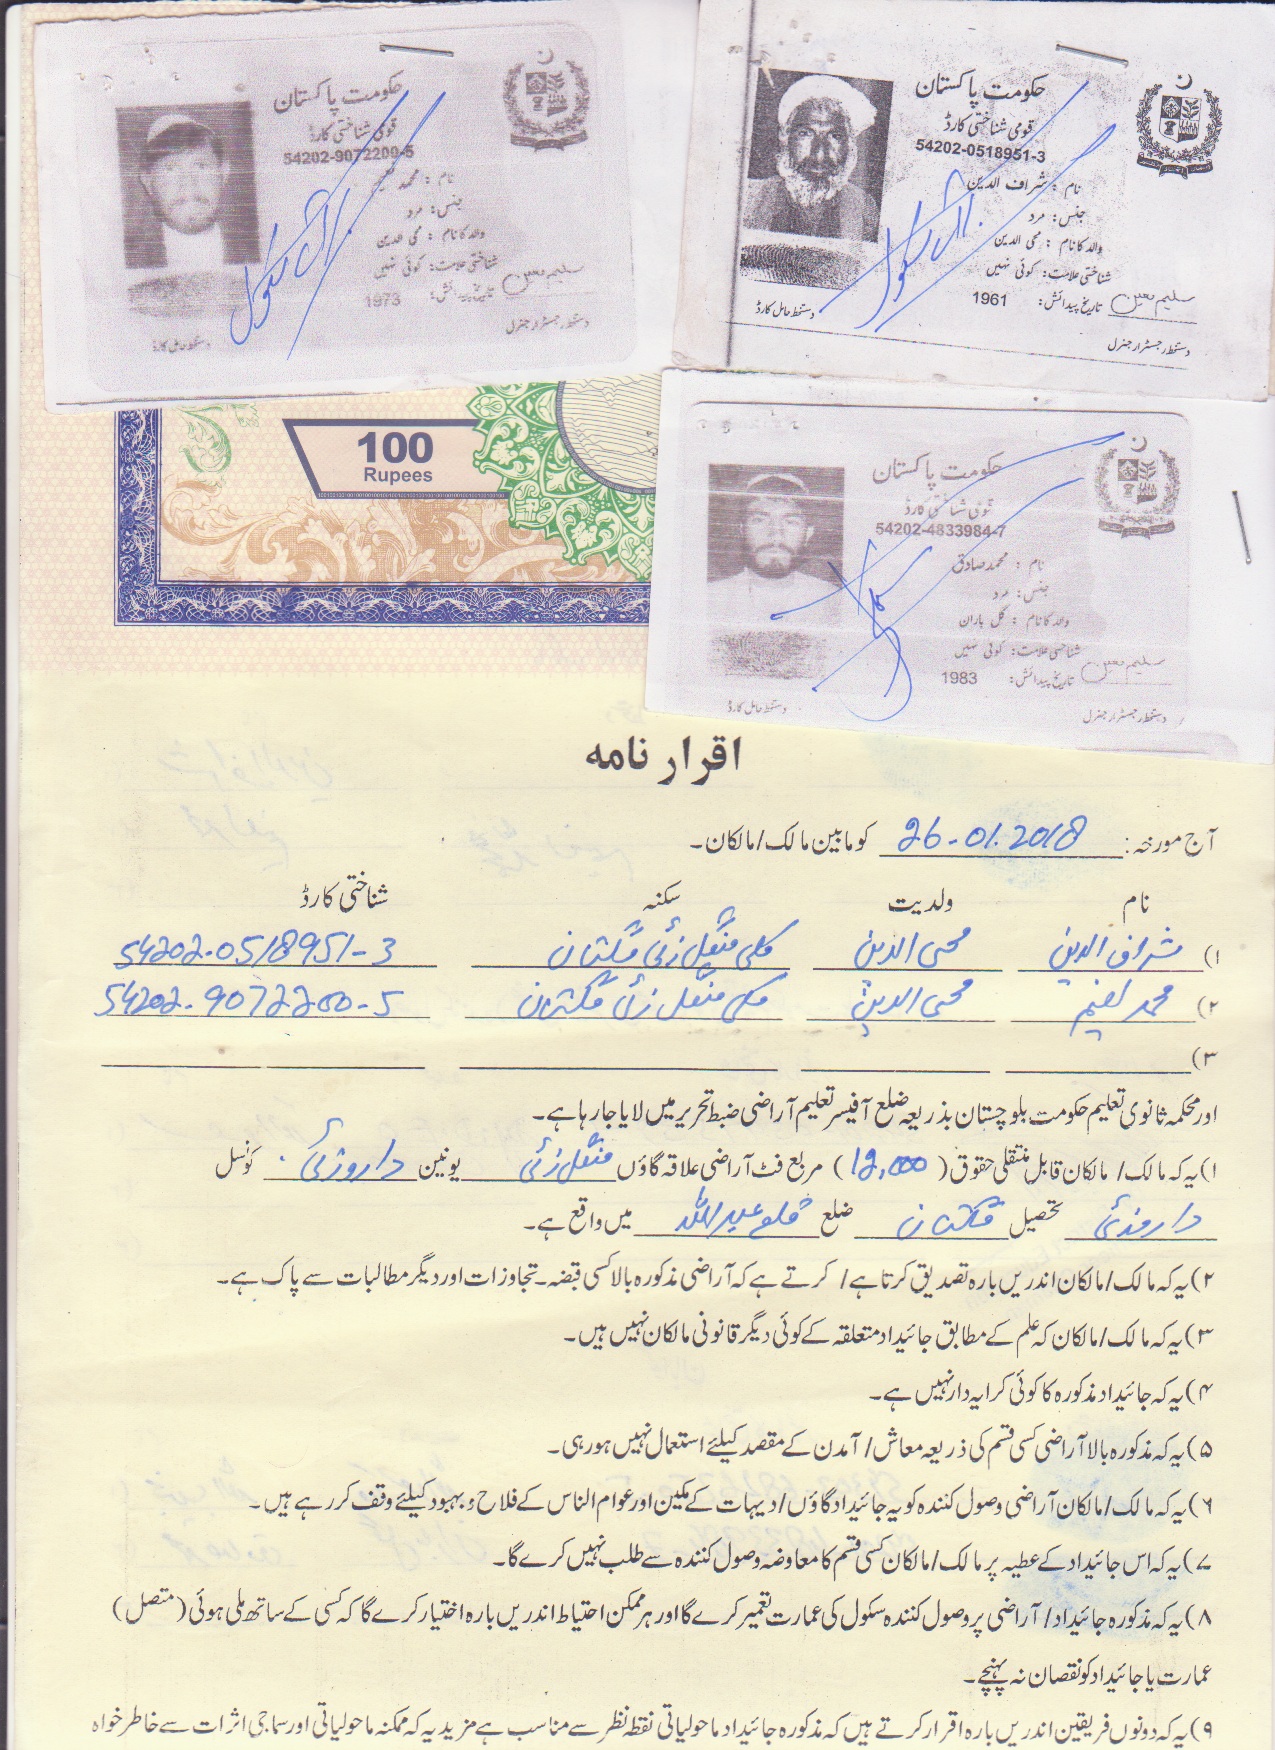 حکومت پاکستان
قومی شناختی کارڈ
54202-9072200-5
نام : محمد
جنس: مرد
والد کا نام : محی الدین
شناختی علامت: کوئی نہیں
تاریخ پیدائش: 1973
دستخط رجسٹرار جنرل
دستخط حامل کارڈ
حکومت پاکستان
قومی شناختی کارڈ
54202-0518951-3
نام : شراف الدین
جنس: مرد
والد کا نام : محی الدین
شناختی علامت: کوئی نہیں
تاریخ پیدائش: 1961
دستخط حامل کارڈ
دستخط رجسٹرار جنرل
100
Rupees
حکومت پاکستان
قومی شناختی کارڈ
54202-4833984-7
نام : محمد صادق
جنس: مرد
والد کا نام : گل باران
شناختی علامت: کوئی نہیں
تاریخ پیدائش: 1983
دستخط حامل کارڈ
دستخط رجسٹرار جنرل
اقرار نامہ
آج مورخہ: 26-01.2018 کو مابین مالک/مالکان۔
نام ولدیت سکنہ شناختی کارڈ
۱) شراف الدین محی الدین کلی منگل زئی گلستان 54202-0518951-3
۲) محمد نعیم محی الدین کلی منگل زئی گلستان 54202-9072200-5
۳)
اور محکمہ ثانوی تعلیم حکومت بلوچستان بذریعہ ضلع آفیسر تعلیم آراضی ضبط تحریر میں لایا جا رہا ہے۔
۱) یہ کہ مالک/ مالکان قابل منتقلی حقوق (12,000) مربع فٹ آراضی علاقہ گاؤں منگل زئی یونین داروزئی۔ کونسل
تحصیل گلستان ضلع قلعہ عبداللہ میں واقع ہے۔
۲) یہ کہ مالک/مالکان اندریں بارہ تصدیق کرتا ہے/ کرتے ہے کہ آراضی مذکورہ بالا کسی قبضہ۔ تجاوزات اور دیگر مطالبات سے پاک ہے۔
۳) یہ کہ مالک/مالکان کہ علم کے مطابق جائیداد متعلقہ کے کوئی دیگر قانونی مالکان نہیں ہیں۔
۴) یہ کہ جائیداد مذکورہ کا کوئی کرایہ دار نہیں ہے۔
۵) یہ کہ مذکورہ بالا آراضی کسی قسم کی ذریعہ معاش/ آمدن کے مقصد کیلئے استعمال نہیں ہو رہی۔
۶) یہ کہ مالک/مالکان آراضی وصول کنندہ کو یہ جائیداد گاؤں/ دیہات کے مکین اور عوام الناس کے فلاح و بہبود کیلئے وقف کر رہے ہیں۔
۷) یہ کہ اس جائیداد کے عطیہ پر مالک/مالکان کسی قسم کا معاوضہ وصول کنندہ سے طلب نہیں کرے گا۔
۸) یہ کہ مذکورہ جائیداد/ آراضی پر وصول کنندہ سکول کی عمارت تعمیر کرے گا اور ہر ممکن احتیاط اندریں بارہ اختیار کرے گا کہ کسی کے ساتھ ملی ہوئی (متصل)
عمارت یا جائیداد کو نقصان نہ پہنچے۔
۹) یہ کہ دونوں فریقین اندریں بارہ اقرار کرتے ہیں کہ مذکورہ جائیداد ماحولیاتی نقطہ نظر سے مناسب ہے مزید یہ کہ ممکنہ ماحولیاتی اور سماجی اثرات سے خاطر خواہ